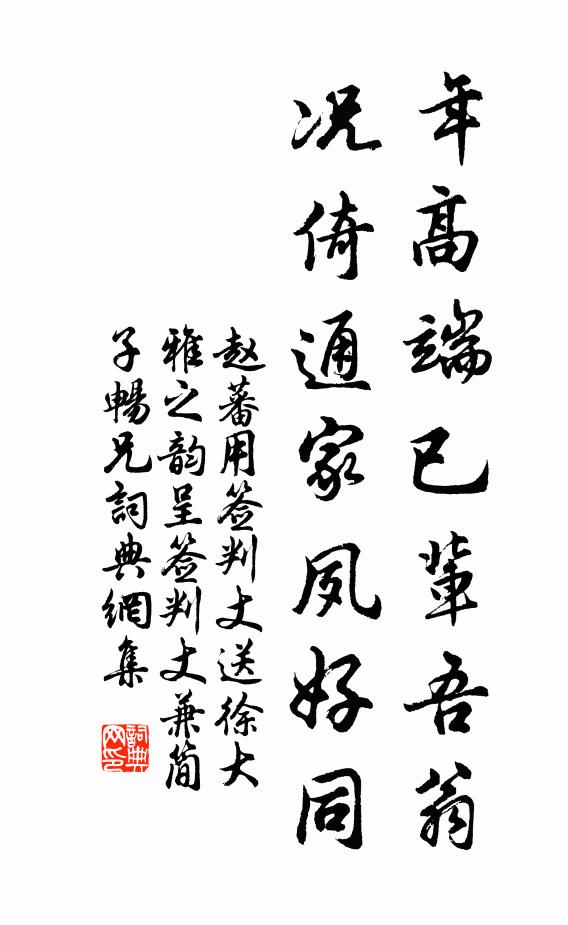 年高端已輩吾翁
况倚通家夙好同
赵蕃用签判丈送徐大
雅之韵呈签判丈兼简
子暢兄詞典網集
詞典
网印